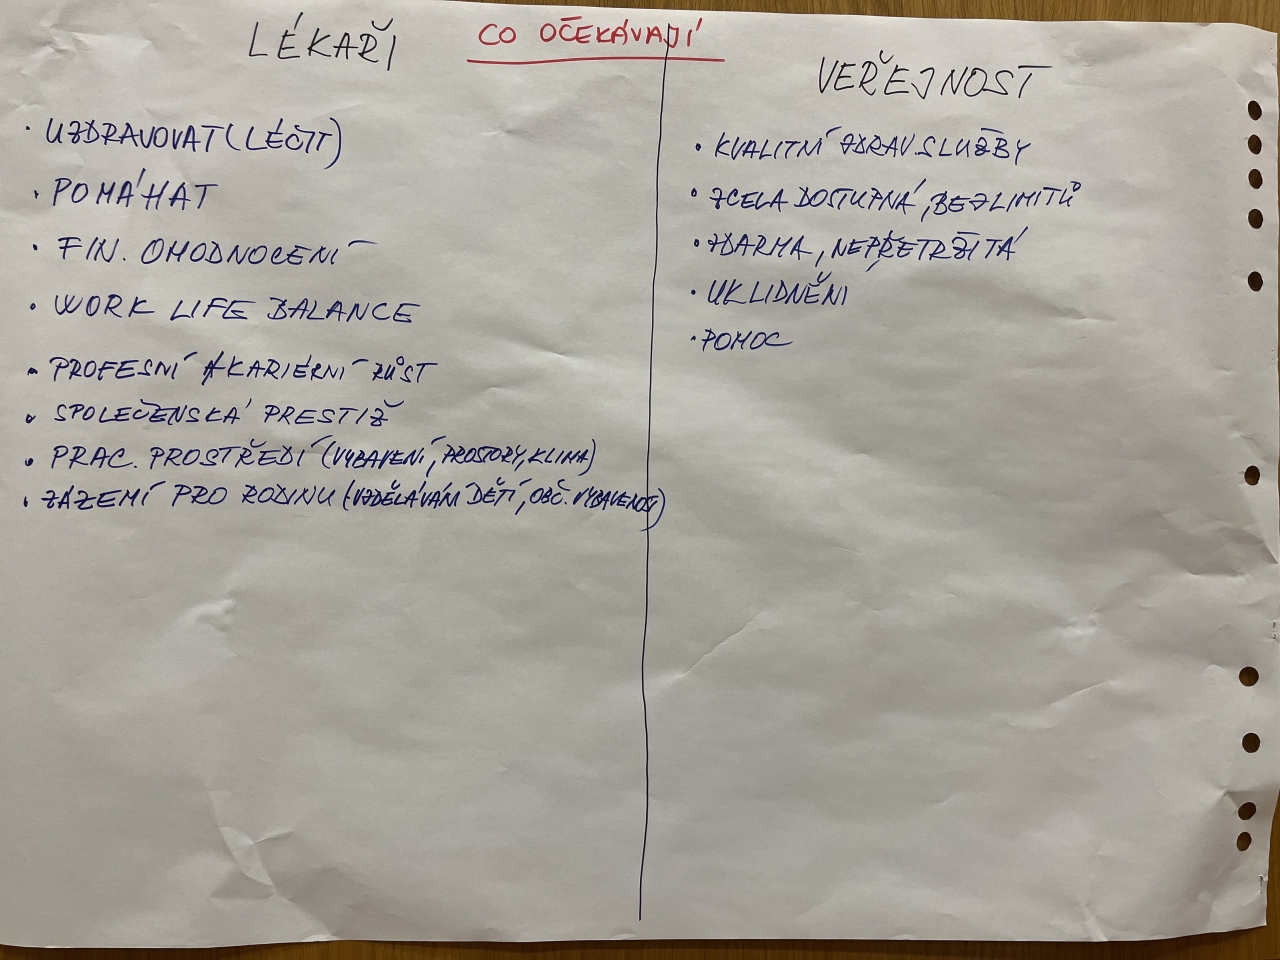 CO OČEKÁVAJÍ
LÉKAŘI
· UZDRAVOVAT (LÉČIT)
· POMÁHAT
· FIN. OHODNOCENÍ
· WORK LIFE BALANCE
· PROFESNÍ A KARIÉRNÍ RŮST
· SPOLEČENSKÁ PRESTIŽ
· PRAC. PROSTŘEDÍ (VYBAVENÍ, PROSTORY, KLIMA)
· ZÁZEMÍ PRO RODINU (VZDĚLÁVÁNÍ DĚTÍ, OBČ. VYBAVENOST)
VEŘEJNOST
· KVALITNÍ ZDRAV. SLUŽBY
· ZCELA DOSTUPNÁ, BEZ LIMITŮ
· ZDARMA, NEPŘETRŽITÁ
· UKLIDNĚNI
· POMOC